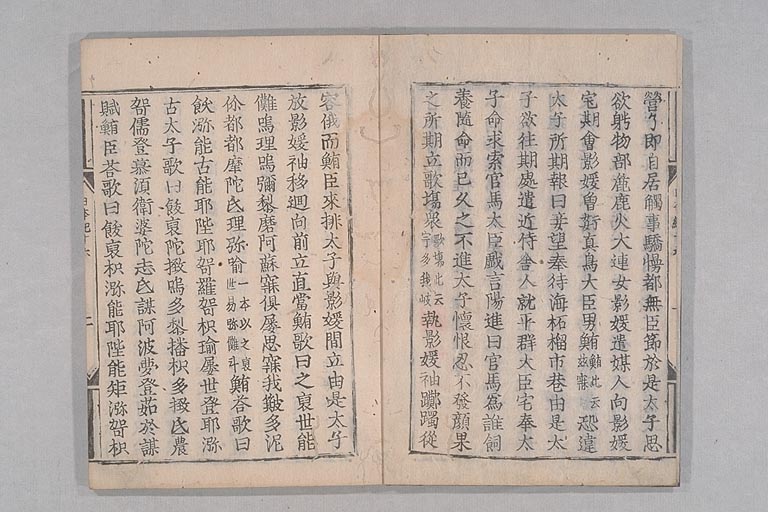 營了即自居觸事驕慢都無臣節於是太子思
欲娉物部麁鹿火大連女影媛遣媒人向影媛
宅期會影媛曾姧真鳥大臣男鮪鮪此云茲寐恐違
太子所期報曰妾望奉待海柘榴市巷由是太
子欲往期處遣近侍舍人就平群大臣宅奉太
子命求索官馬大臣戲言陽進曰官馬為誰飼
養隨命而已久之不進太子懷恨忍不發顏果
之所期立歌場衆歌場此云宇多我岐執影媛袖躑躅從
容俄而鮪臣來排太子與影媛間立由是太子
放影媛袖移迴向前立直當鮪歌曰之裒世能
儺嗚理嗚彌黎磨阿蘇寐倶屢思寐我簸多泥
伱都都摩陀氐理弥喩一本以之裒世易弥儺斗鮪荅歌曰
飫瀰能古能耶陛耶哿羅哿枳瑜屢世登耶瀰
古太子歌曰飫裒陀揬嗚多黎播枳多揬氐農
哿儒登慕須衛婆陀志氐謀阿波夢登茹於謀
賦鮪臣荅歌曰飫裒枳瀰能耶陛能矩瀰哿枳